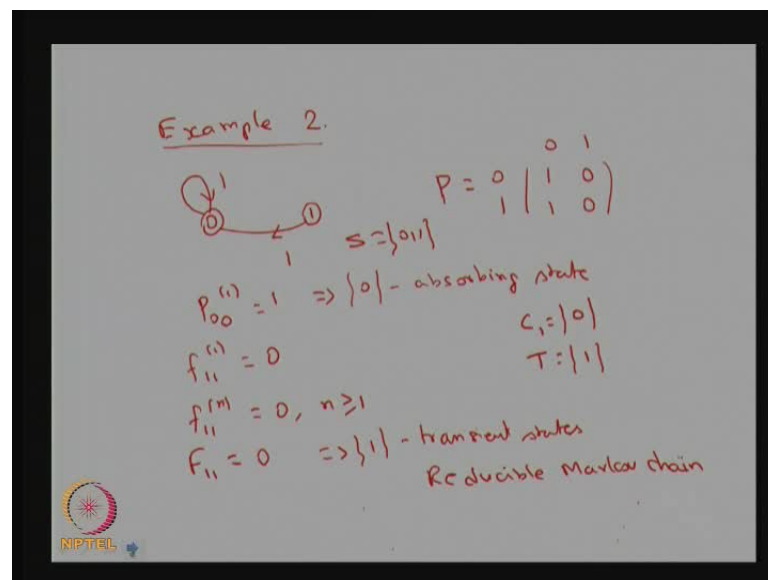 Example 2.
0 1
P = 0 ( 1 0 )
1 ( 1 0 )
1
0 1
1
S = {0,1}
P₀₀⁽¹⁾ = 1 => {0} - absorbing state
C₁ = {0}
f₁₁⁽¹⁾ = 0
T = {1}
f₁₁⁽ⁿ⁾ = 0, n ≥ 1
F₁₁ = 0 => {1} - transient states
Reducible Markov chain
NPTEL